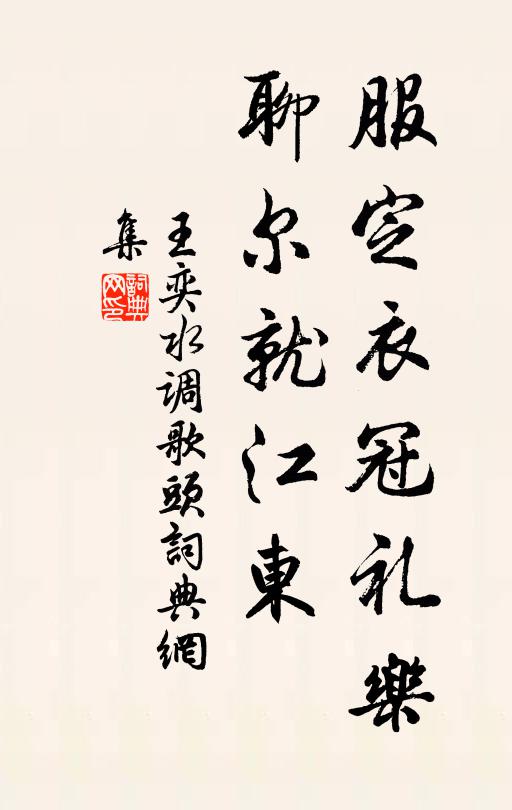 服定衣冠礼樂
聊尔就江東
王奕水调歌頭詞典網
集
詞典网印